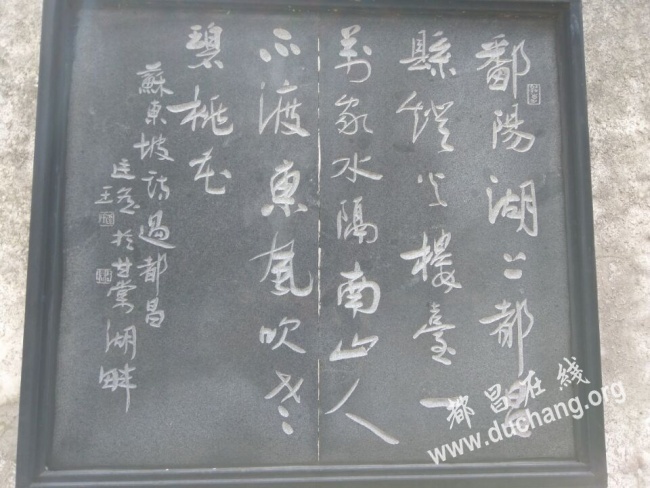 鄱陽湖上都昌
縣燈火樓臺一
萬家水隔南山人
不渡東風吹老
碧桃花
蘇東坡詩過都昌
於甘棠湖畔
都昌在线
www.duchang.org